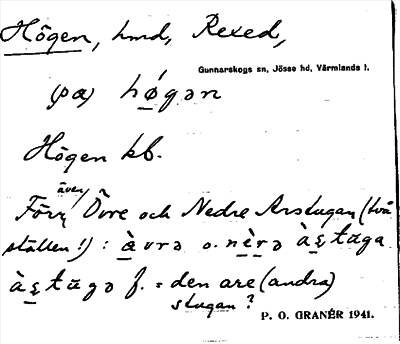 Högen, hmd, Rexed,
Gunnarskogs sn, Jösse hd, Värmlands l.
(på) hø̱gən
Högen kb.
även
Förr Övre och Nedre Arstugan (två
ställen!): à̱vrə o. nè̱rə às̱tuga
às̱tugə f. = den are (andra)
stugan?
P. O. GRANÉR 1941.